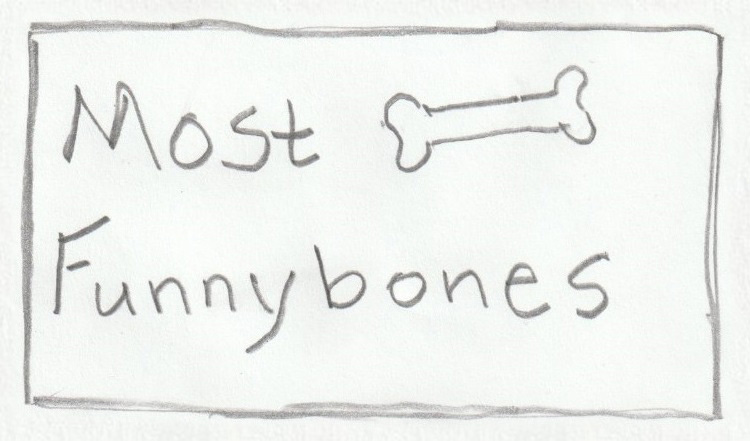 Most
Funnybones